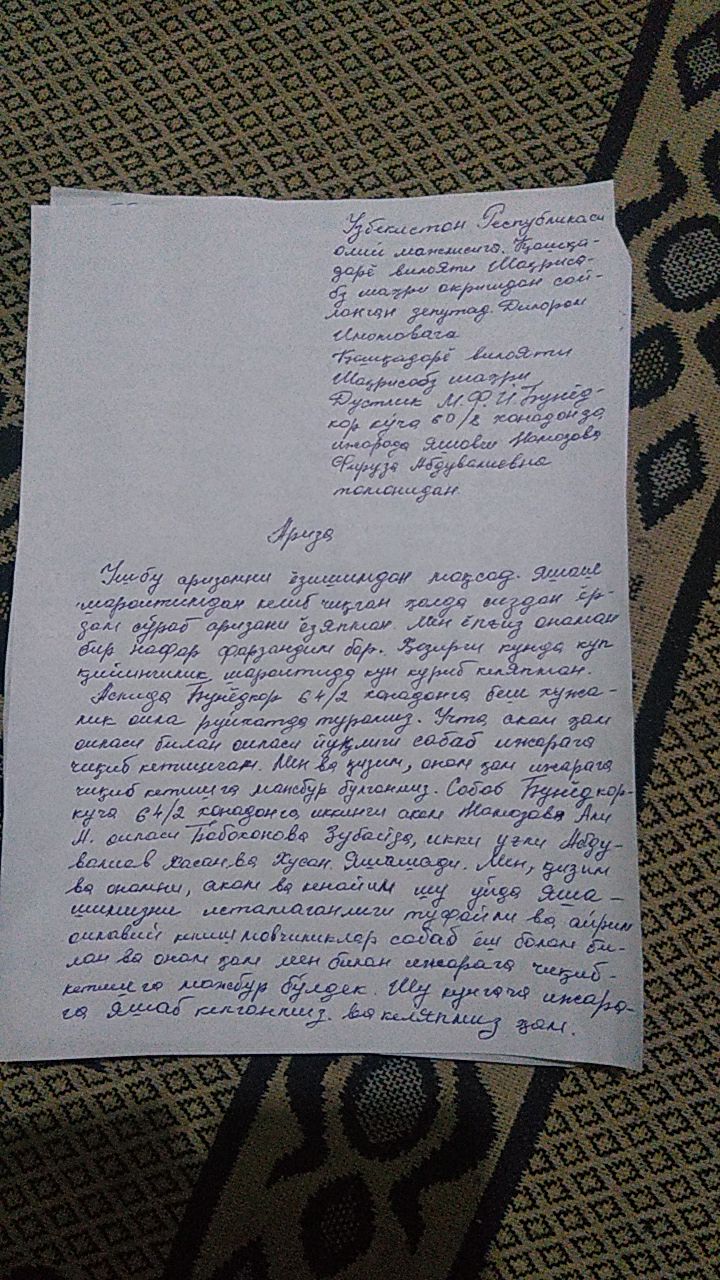 Узбекистон Республикаси
олий мажлисига. Қашқа-
дарё вилояти Шаҳриса-
бз шаҳри округидан сай-
ланган депутад. Дилором
Имомовага
Қашқадарё вилояти
Шаҳрисабз шаҳри
Дустлик М.Ф.Й. Бунёд-
кор кўча 60/2 хонадонда
ижарада яшовчи Намозова
Фируза Абдувалиевна
томонидан
Ариза
Ушбу аризамни ёзишимдан мақсад. Яшаш
шароитимдан келиб чиққан ҳолда сиздан ёр-
дам сўраб аризани ёзяпман. Мен ёлғиз онаман
бир нафар фарзандим бор. Ҳозирги кунда куп
қийинчилик шароитида кун куриб келяпман.
Аслида Бунёдкор 64/2 хонадонга беш хужа-
лик оила руйхатда турамиз. Учта акам ҳам
оиласи билан оиласи йуқлиги сабаб ижарага
чиқиб кетишган. Мен ва қизим, онам ҳам ижарага
чиқиб кетишга мажбур булганмиз. Сабаб Бунёдкор-
куча 64/2 хонадонга иккинги акам Намозов Али
А. оиласи Бобохонова Зубайда, икки угли Абду-
валиев Хасан ва Хусан. Яшашади. Мен, қизим
ва онамни, акам ва кенайим шу уйда яша-
шимизни истамаганлиги туфайли ва айрим
оилавий келишмовчиликлар сабаб ёш болам би-
лан ва онам ҳам мен билан ижарага чиқиб-
кетишга мажбур бўлдек. Шу кунгача ижара-
га яшаб келганмиз. ва келяпмиз ҳам.